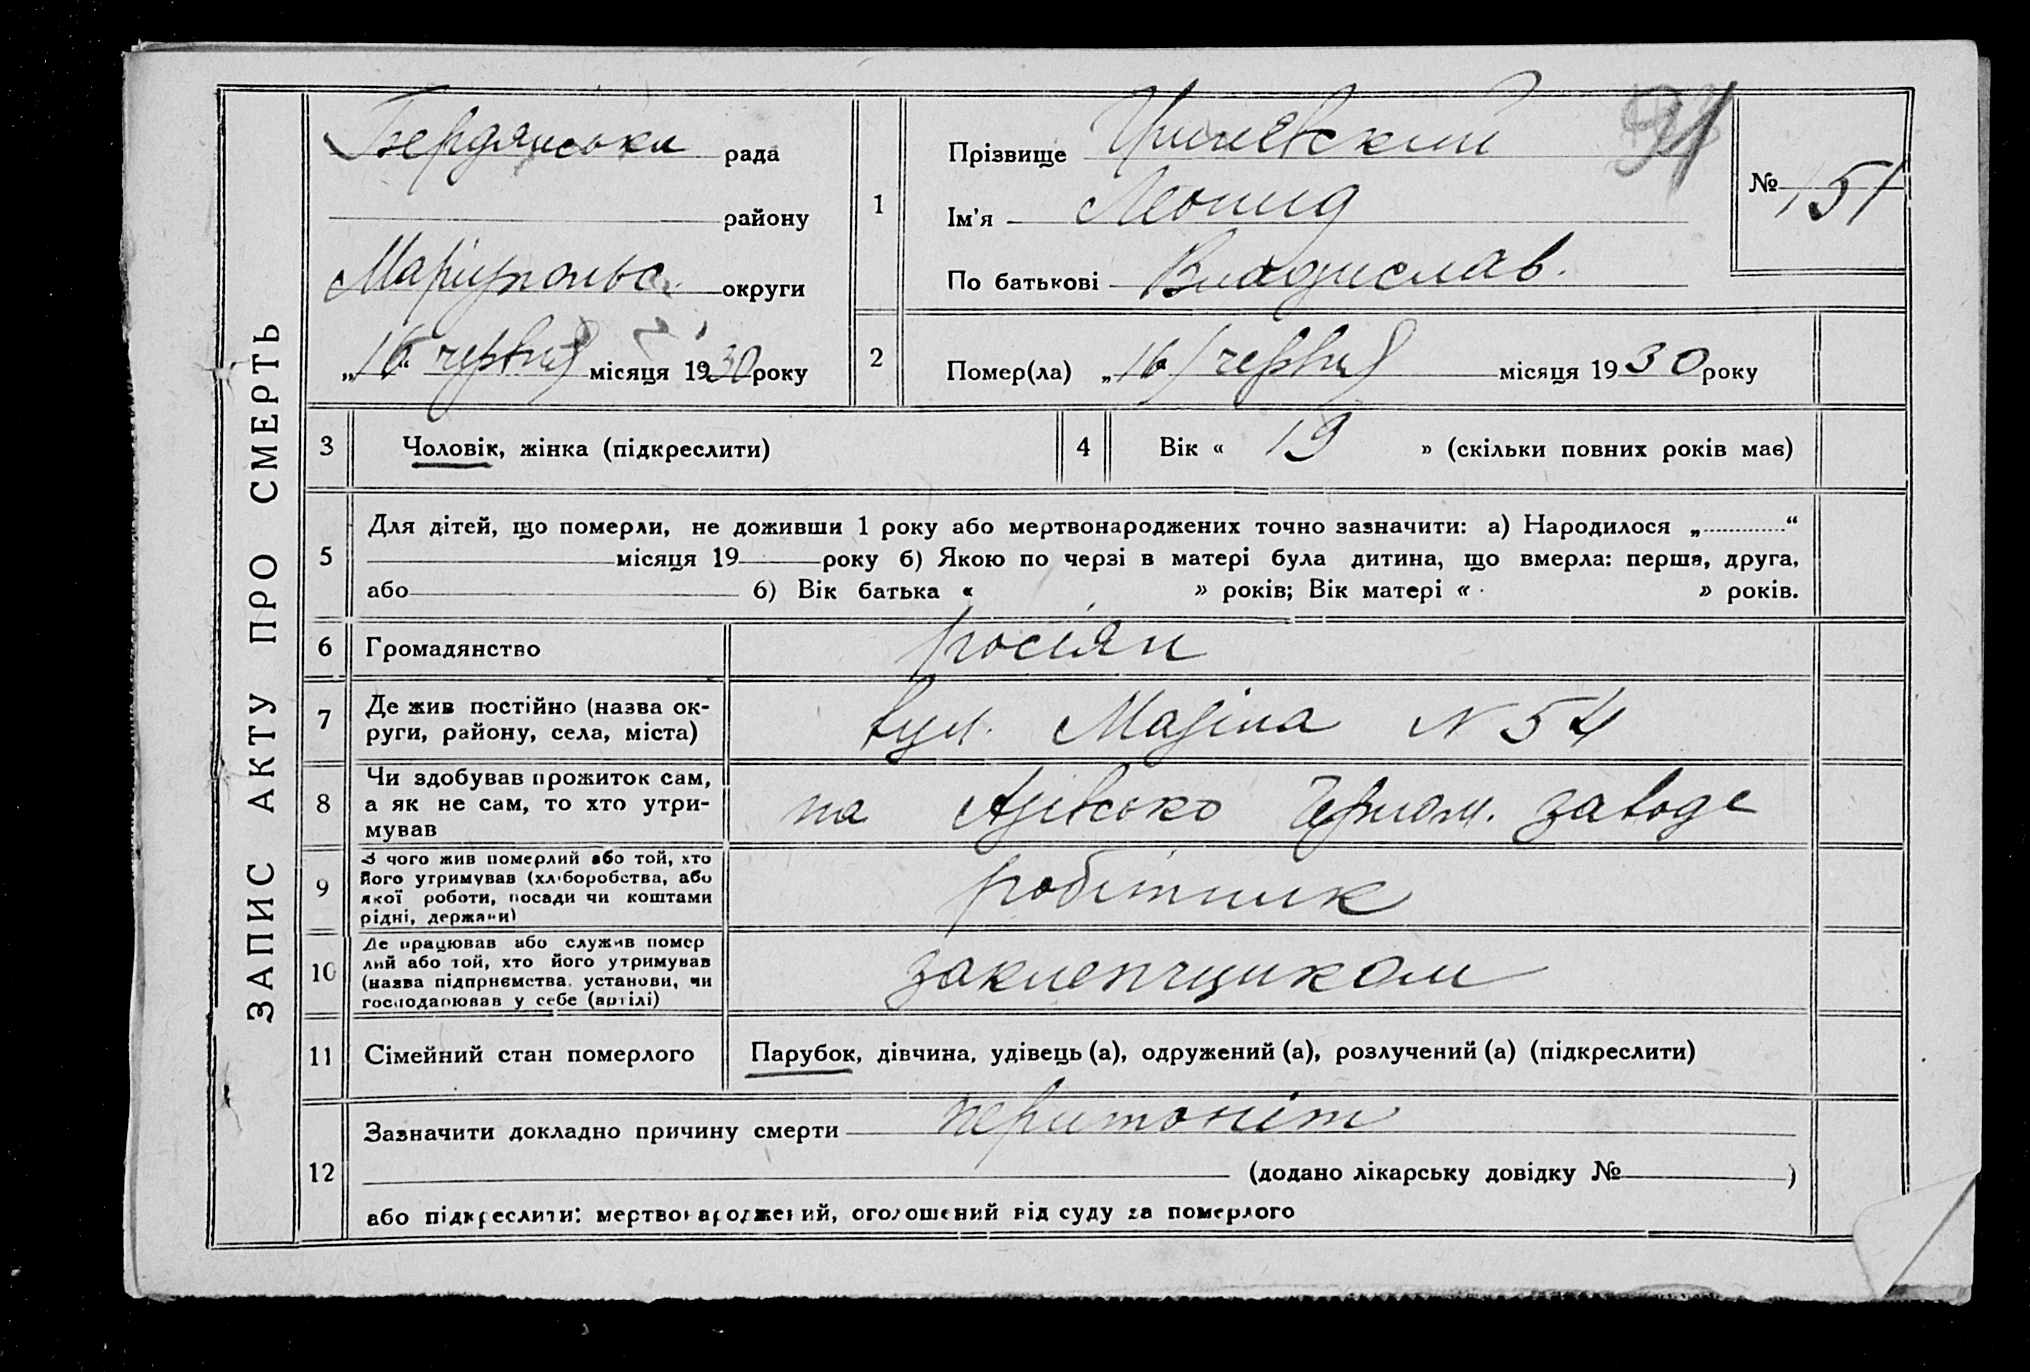 ЗАПИС АКТУ ПРО СМЕРТЬ
Бердянська рада
району
Маріупольс. округи
„16“ червня місяця 1930 року
1
Прізвище
Ім'я Леонид
По батькові Владислав.
91
№ 151
2
Помер(ла) „16 червня місяця 1930 року
3 Чоловік, жінка (підкреслити)
4 Вік « 19 » (скільки повних років має)
5
Для дітей, що померли, не доживши 1 року або мертвонароджених точно зазначити: а) Народилося „ “
місяця 19 року б) Якою по черзі в матері була дитина, що вмерла: перша, друга,
або б) Вік батька « » років; Вік матері « » років.
6 Громадянство росіян
7 Де жив постійно (назва ок-
руги, району, села, міста)
вул. Мазіна N 54
8 Чи здобував прожиток сам,
а як не сам, то хто утри-
мував
на Азівсько Чорном. заводе
9 З чого жив померлий або той, хто
його утримував (хліборобства, або
якої роботи, посади чи коштами
рідні, держави)
робітник
10 Де працював або служив помер
лий або той, хто його утримував
(назва підприємства, установи, чи
господарював у себе (артілі)
заклепчиком
11 Сімейний стан померлого Парубок, дівчина, удівець (а), одружений (а), розлучений (а) (підкреслити)
12
Зазначити докладно причину смерти перитоніт
(додано лікарську довідку № )
або підкреслити: мертвонароджений, оголошений від суду за померлого